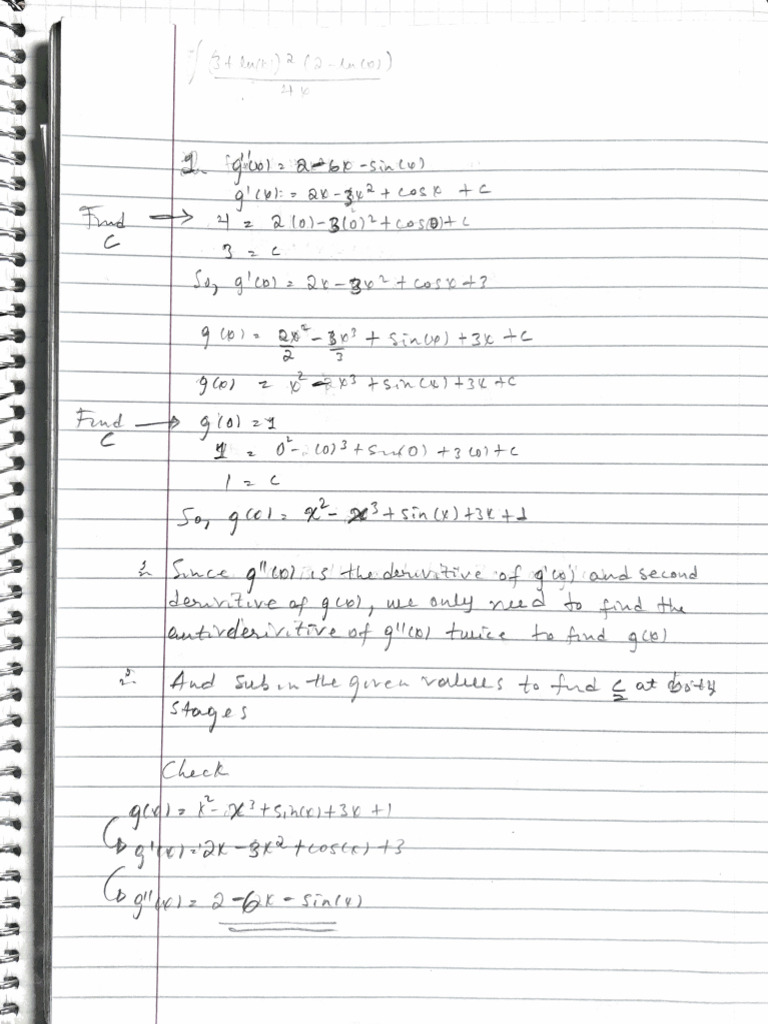 (3 + ln(x))² (2 - ln(x))
4x
1. g''(x) = 2 - 6x - sin(x)
g'(x) = 2x - 3x² + cosx + c
Find C → 4 = 2(0) - 3(0)² + cos(0) + c
3 = c
So, g'(x) = 2x - 3x² + cosx + 3
g(x) = 2x²/2 - 3x³/3 + sin(x) + 3x + c
g(x) = x² - x³ + sin(x) + 3x + c
Find C → g(0) = 1
1 = 0² - (0)³ + sin(0) + 3(0) + c
1 = c
So, g(x) = x² - x³ + sin(x) + 3x + 1
Since g''(x) is the derivitive of g'(x) and second
derivitive of g(x), we only need to find the
antiderivitive of g''(x) twice to find g(x)
And sub in the given values to find c at both
stages
Check
g(x) = x² - x³ + sin(x) + 3x + 1
g'(x) = 2x - 3x² + cos(x) + 3
g''(x) = 2 - 6x - sin(x)